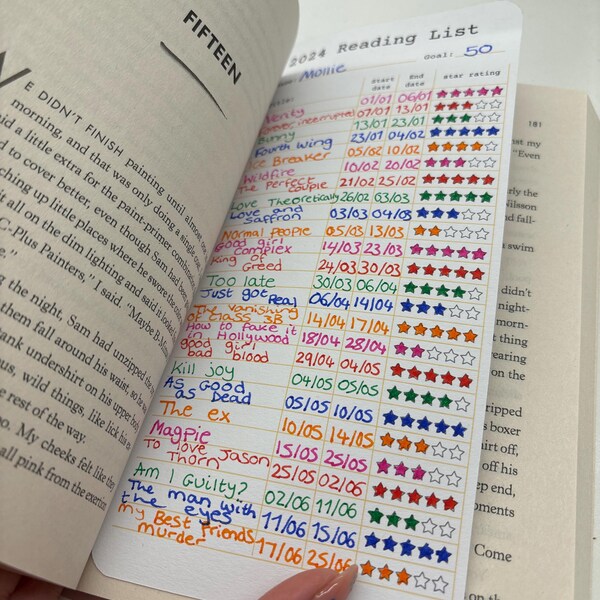 FIFTEEN
WE DIDN'T FINISH painting until almost
morning, and that was only doing a single
a little extra for the paint, primer
to cover better, even though Sam had
up little places where he swore the
it all on the dim lighting and said it looked
"C-Plus Painters," I said. "Maybe
the night, Sam had unzipped the
them fall around his waist, so
undershirt on his upper body
wild things, like lick his
the rest of the way.
My cheeks felt like they
all pink from the exertion
2024 Reading List
Goal: 50
Mollie
Start date End date star rating
Verity 01/01 06/01
Forever, interrupted 07/01 13/01
Bunny 13/01 23/01
Fourth wing 23/01 04/02
Ice Breaker 05/02 10/02
Wildfire 10/02 20/02
The Perfect couple 21/02 25/02
Love Theoretically 26/02 03/03
Love and saffron 03/03 04/03
Normal people 05/03 13/03
Good girl complex 14/03 23/03
King of Greed 24/03 30/03
Too late 30/03 06/04
Just got Real 06/04 14/04
The Vanishing of class 3B 14/04 17/04
How to fake it in Hollywood 18/04 28/04
good girl bad blood 29/04 04/05
Kill joy 04/05 05/05
As Good as Dead 05/05 10/05
The ex 10/05 14/05
Magpie 15/05 25/05
To love Jason Thorn 25/05 02/06
Am I Guilty? 02/06 11/06
The man with the eyes 11/06 15/06
my Best friends murder 17/06 25/06
181
my
"Even
the
Wilsson
and fall-
swim
didn't
night-
morn-
wearing
on the
ripped
boxer
off,
off his
end,
Come